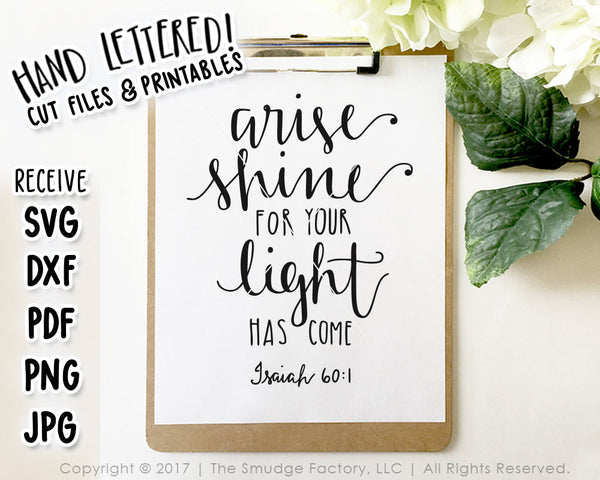 HAND LETTERED!
CUT FILES & PRINTABLES
RECEIVE
SVG
DXF
PDF
PNG
JPG
arise
shine
FOR YOUR
light
HAS COME
Isaiah 60:1
Copyright © 2017 | The Smudge Factory, LLC | All Rights Reserved.